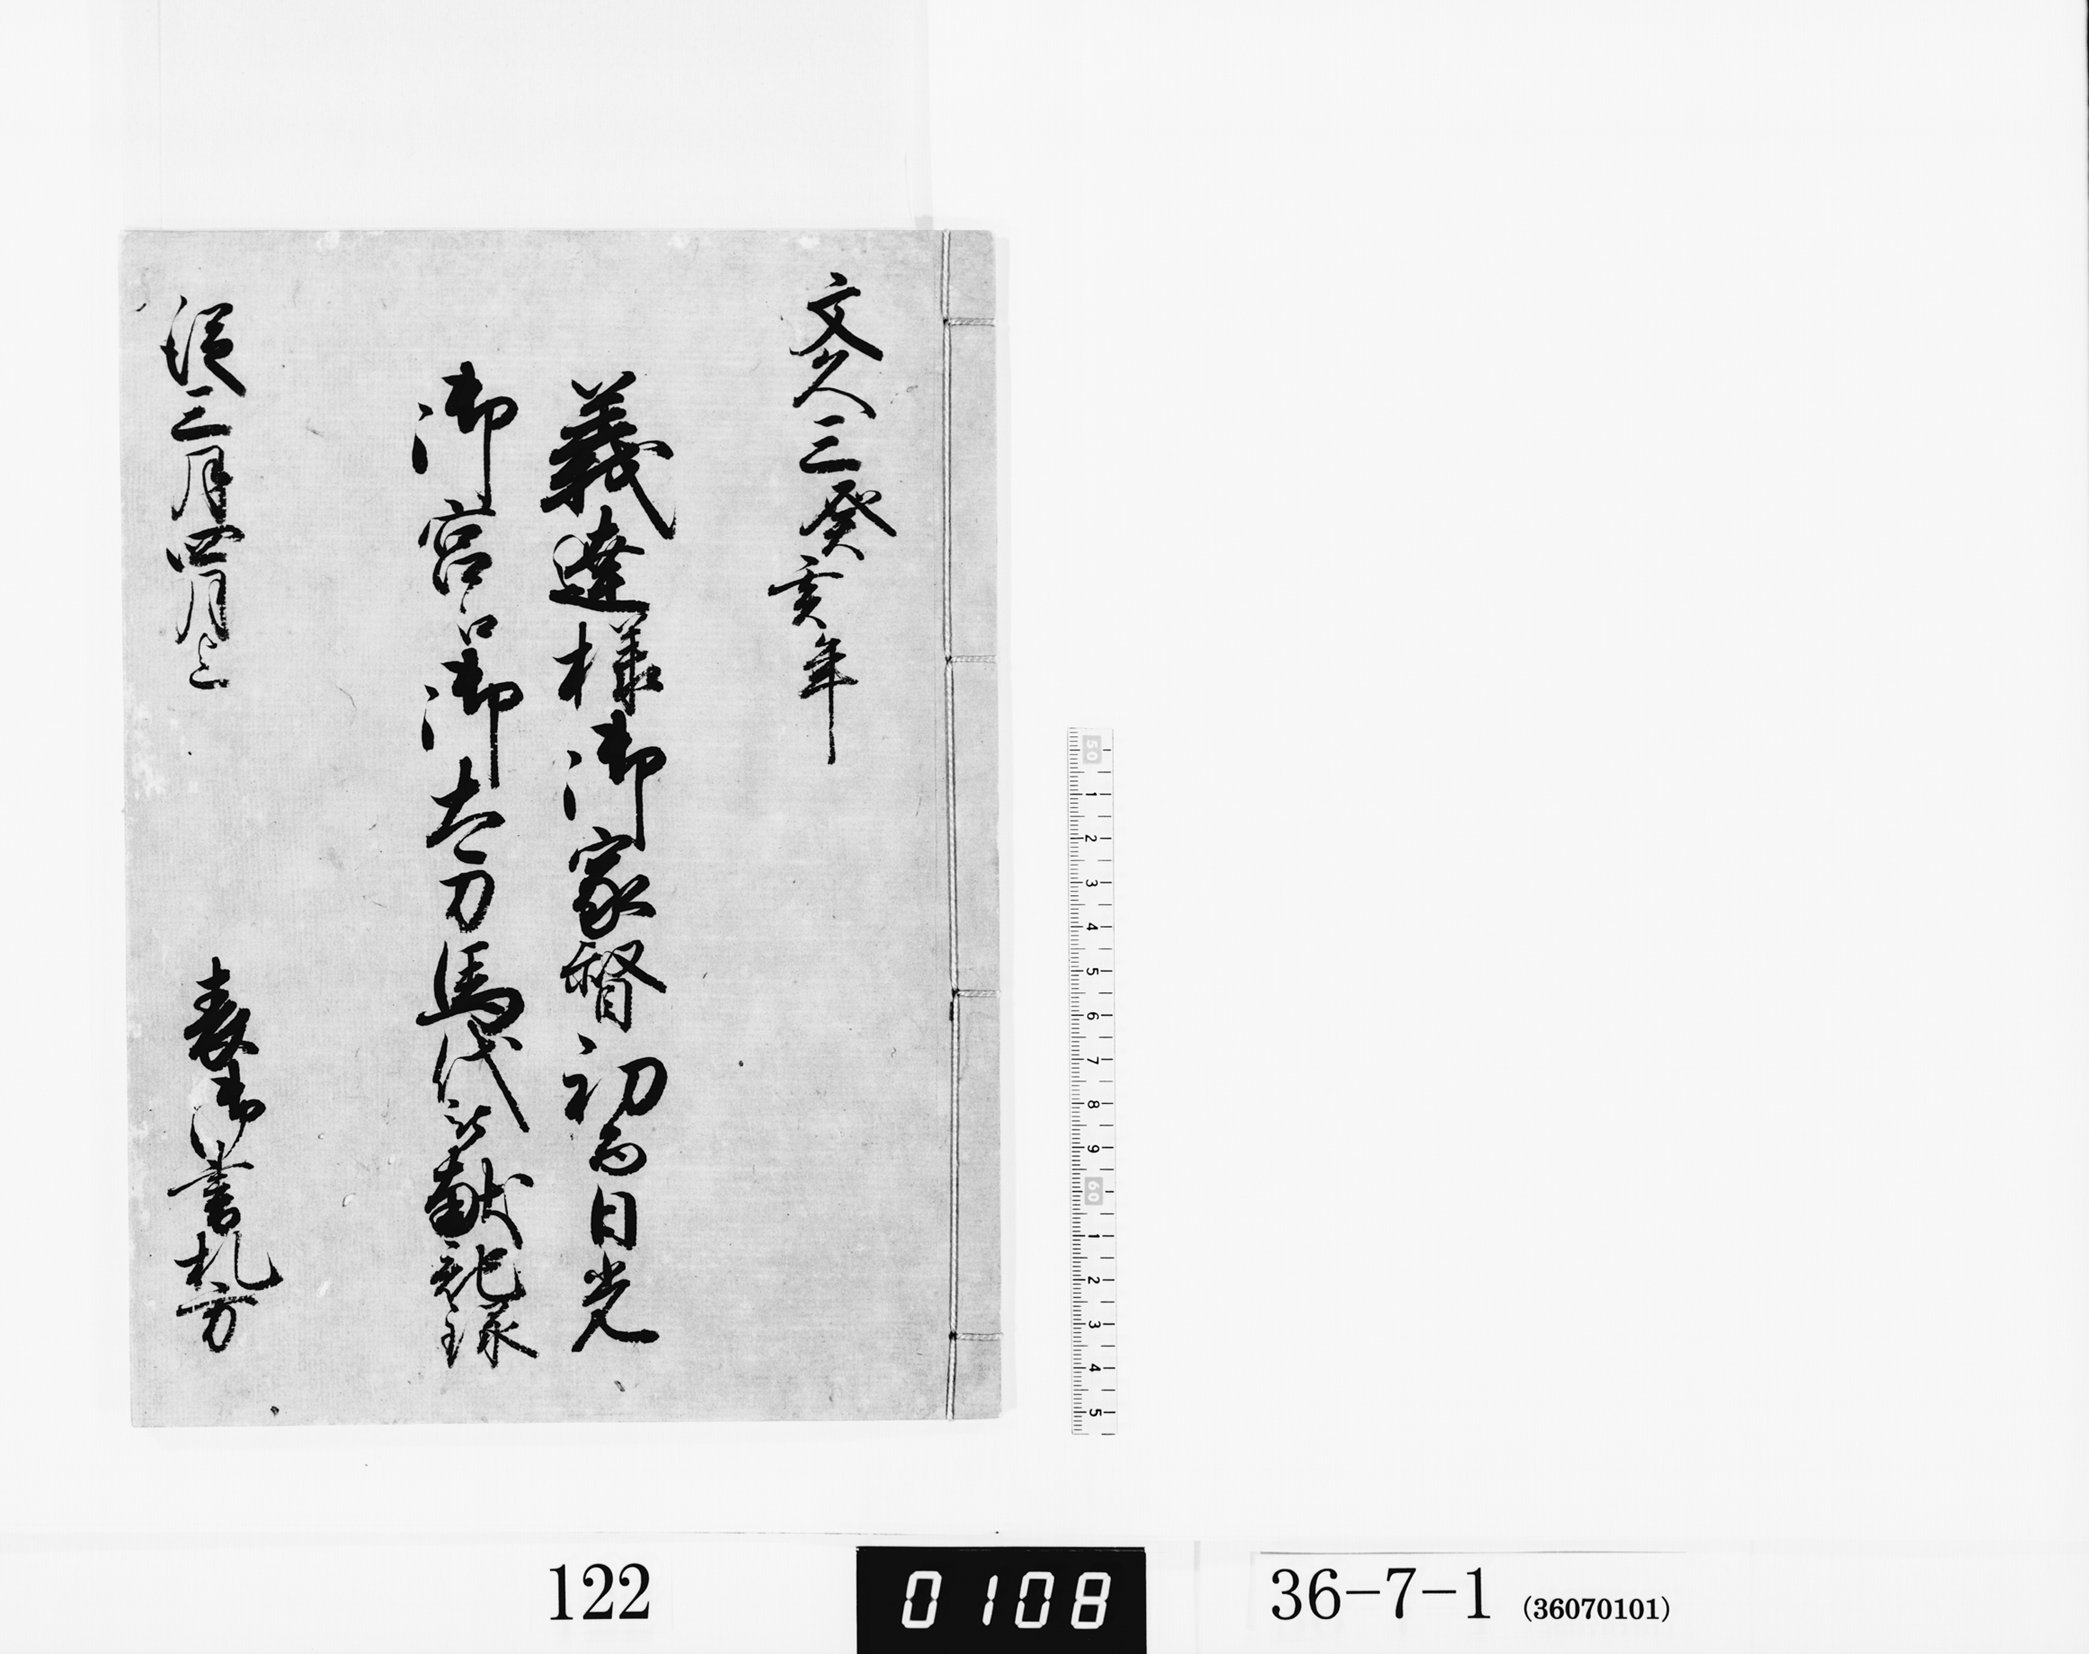 文久三癸亥年
義達様御家督初而日光
御宮江御太刀馬代御献記録
従三月四月上
表御書札方
50 1 2 3 4 5 6 7 8 9 60 1 2 3 4 5
122
0108
36-7-1 (36070101)